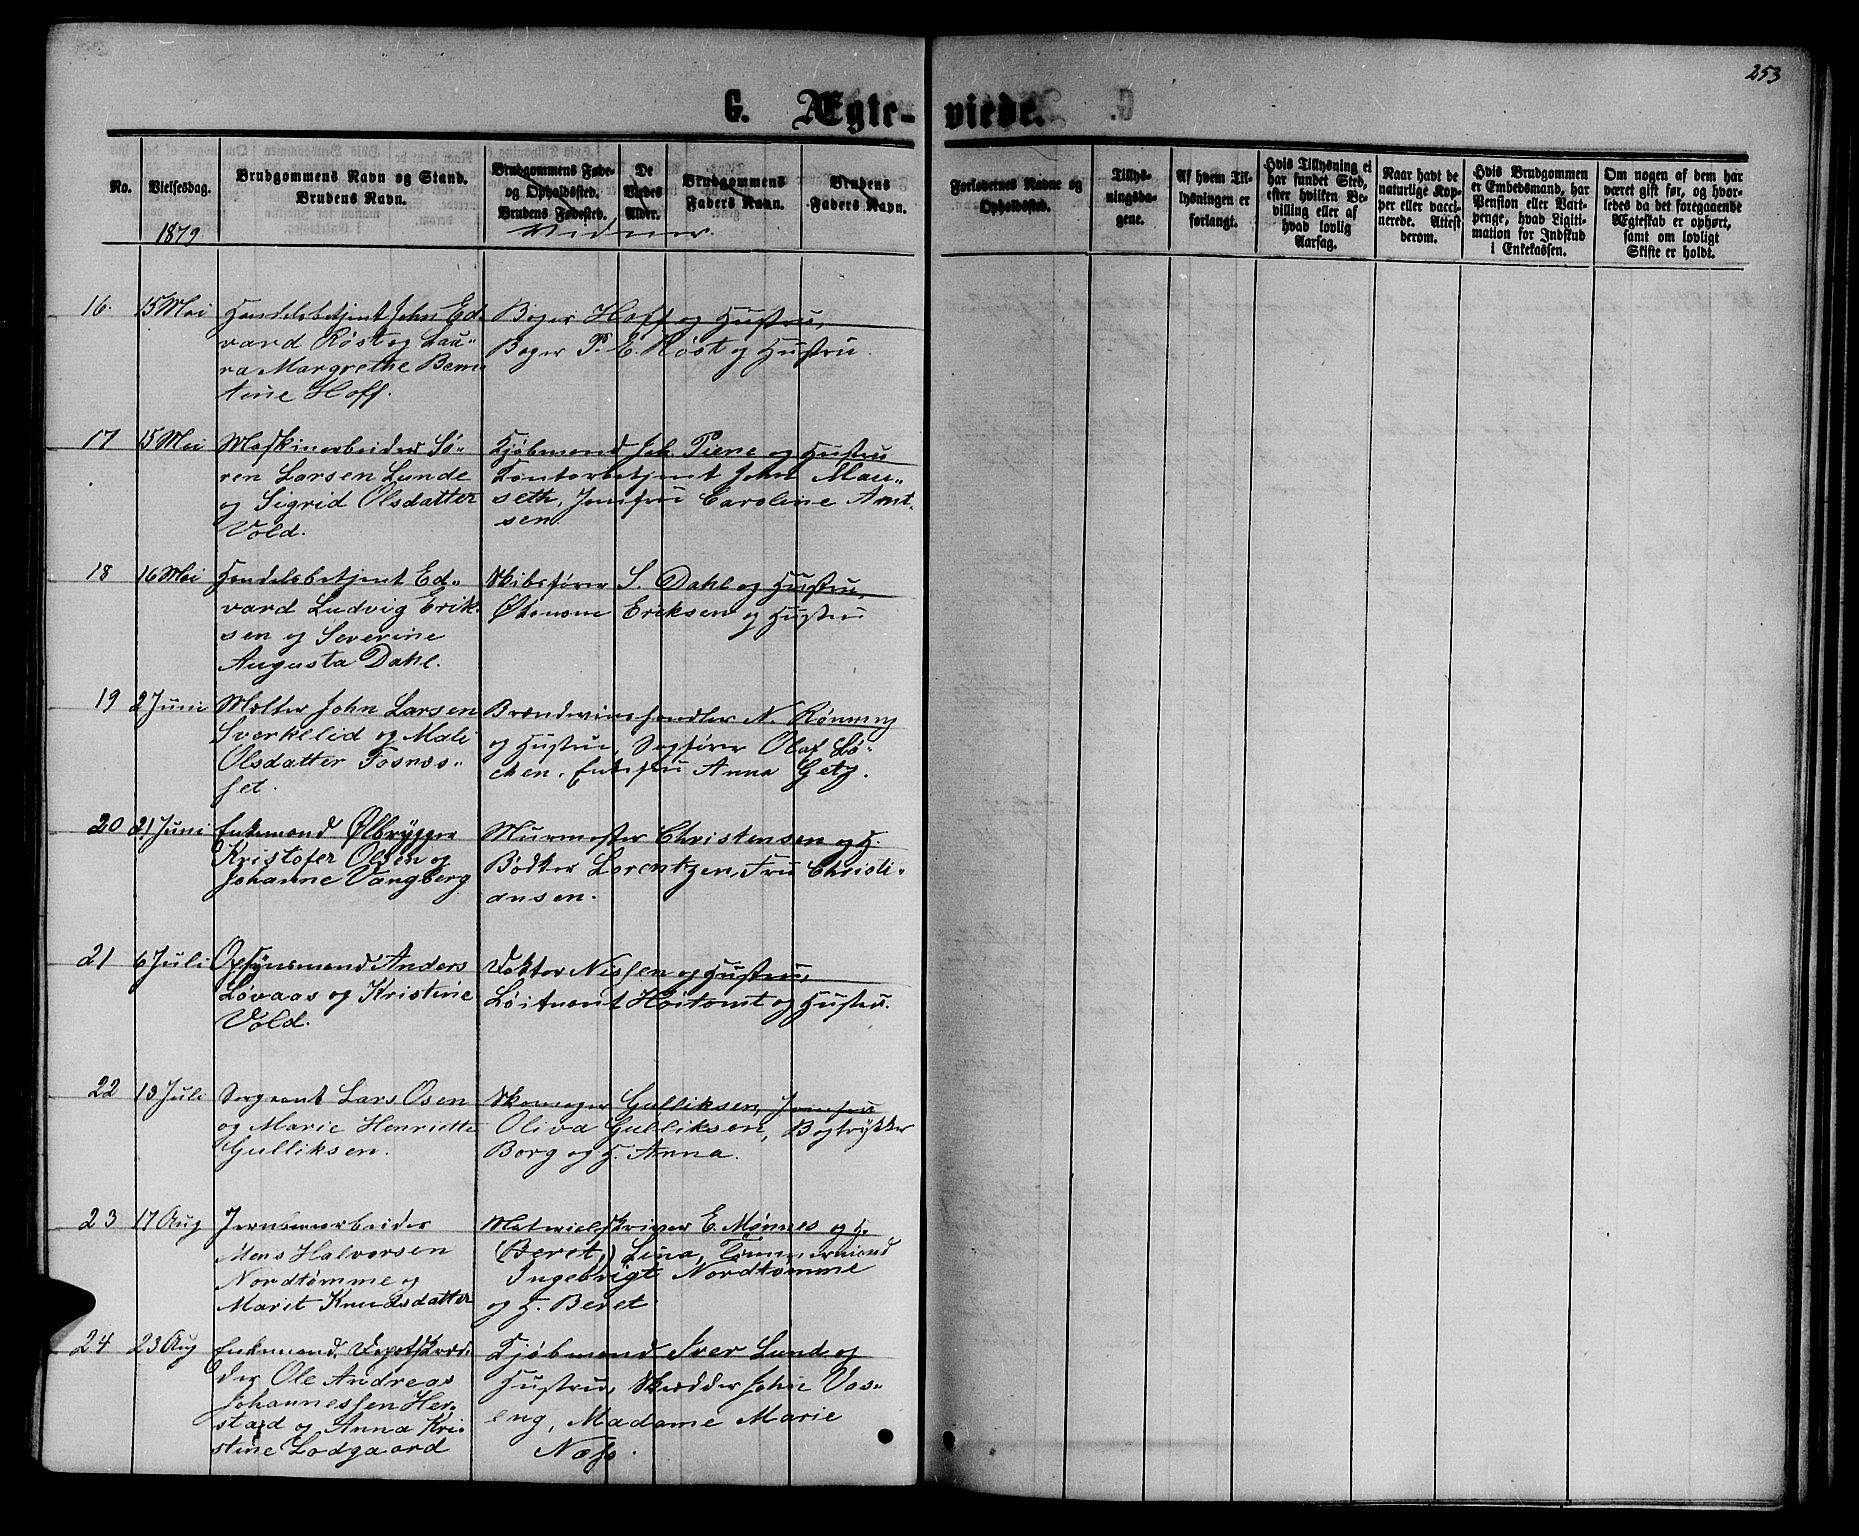 253
G. Ægte-viede.
No.
Vielsesdag.
Brudgommens Navn og Stand.
Brudens Navn.
Brudgommens Føde-
og Opholdssted.
Brudens Fødested.
De
Viedes
Alder.
Brudgommens
Faders Navn.
Brudens
Faders Navn.
Forlovernes Navne og
Opholdssted.
Tillys-
ningsda-
gene.
Af hvem Til-
lysningen er
forlangt.
Hvis Tillysning ei
har fundet Sted,
efter hvilken Be-
villing eller af
hvad lovlig
Aarsag.
Naar havt de
naturlige Kop-
per eller vacci-
nerede. Attest
derom.
Hvis Brudgommen
er Embedsmand, har
Pension eller Vart-
penge, hvad Ligiti-
mation for Indskud
i Enkekassen.
Om nogen af dem har
været gift før, og hvor-
ledes da det foregaaende
Ægteskab er ophørt,
samt om lovligt
Skifte er holdt.
1879
Vidner.
16. 15 Mai Handelsbetjent John Ed-
vard Røst og Lau-
ra Margrethe Bern
tine Hoff.
Bager Hoff og Hustru,
Bager P. E. Røst og Hustru.
17 15 Mai Maskinarbeider Sø-
ren Larsen Lunde
og Sigrid Olsdatter
Vold.
Kjøbmand Joh. Piene og Hustru
Kontorbetjent John Mau-
seth, Jomfru Caroline Arnt-
sen
18 16 Mai Handelsbetjent Ed-
vard Ludvig Erik-
sen og Severine
Augusta Dahl.
Skibsfører S. Dahl og Hustru,
Økonom Eriksen og Hustru
19 2 Juni Malter John Larsen
Sverklid og Mali
Olsdatter Fosnæs-
set.
Brændevinshandler N. Rønning
og Hustru, Sagfører Olaf Lø-
chen, Enkefru Anna Getz.
20 21 Juni Enkemand Ølbrygger
Kristofer Olsen og
Johanne Vangberg
Murmester Christensen og H.
Bødker Lorentzen, Fru Christi-
ansen.
21 6 Juli Opsynsmand Anders
Løvaas og Kristine
Vold.
Doktor Nissen og Hustru,
Løitnant Høitomt og Hustru.
22 13 Juli Sergeant Lars Osen
og Marie Henriette
Gulliksen.
Skomager Gulliksen, Jomfru
Oliva Gulliksen, Bogtrykker
Borg og H. Anna.
23 17 Aug Jernbanearbeider
Mons Halvorsen
Nordtømme og
Marit Knudsdatter
Materialskriver E. Mønnes og H.
(Beret,) Lina, Tømmermand
Ingebrigt Nordtømme
og H. Beret
24 23 Aug Enkemand, Depotskræd-
der Ole Andreas
Johannessen Her-
stad og Anna Kri-
stine Lodgaard
Kjøbmand Iver Lund og
Hustru, Skrædder John Vas-
eng, Madame Marie
Næss.